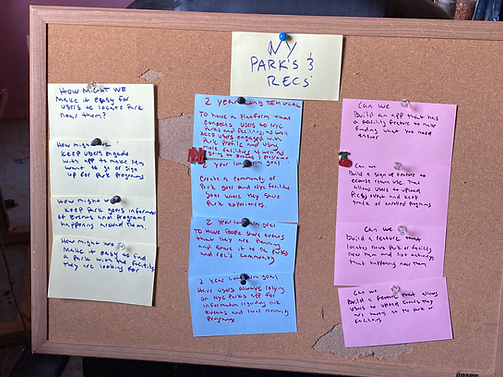 NY
PARK'S &
RECS
How might we
make it easy for
users to locate Park
near them?
How might we
keep users engaged
with app to make them
want to go or sign
up for Park programs
How might we
keep Park goers informed
of events and programs
happening around them.
How might we
make it easy to find
a Park with the facility
they are looking for
2 year long term goal
To have a platform that
connects users to NYC
Parks and facility, as well
keep users engaged with
Park Profile and
2 year long term goal
Create a community of
Park goers and NYC facility
goers where they share
Park experiences.
2 year long term goal
To have people share events
that they are planning
and share it to the Parks
and Rec's community
2 year long term goal
Have users always relying
on NYC Parks app for
information regarding park
events and local community
programs.
Can we
Build an app that has
a facility feature to make
finding what you need
easier
Can we
Build a sign up feature
allows users to upload
events and keep
track of enrolled programs
Can we
Build a feature that
locates news Park or facility
near them and list activities
that happening near them
Can we
Build a feature that allows
users to upload events they
are having at the Park or
facilities